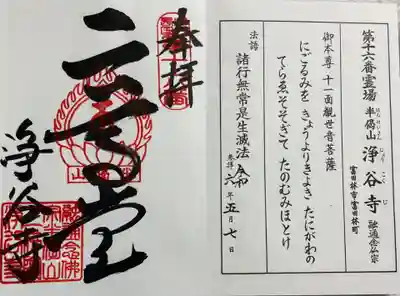 第十六番霊場
半偈山 浄谷寺 融通念仏宗
じょう こく じ
富田林市富田林町
御本尊 十一面観世音菩薩
にごるみを きょうよりきよき たにがわの
てらゑそそぎて たのむみほとけ
法語
諸行無常是生滅法
参拝 令和六年五月七日
奉拝
浄谷寺